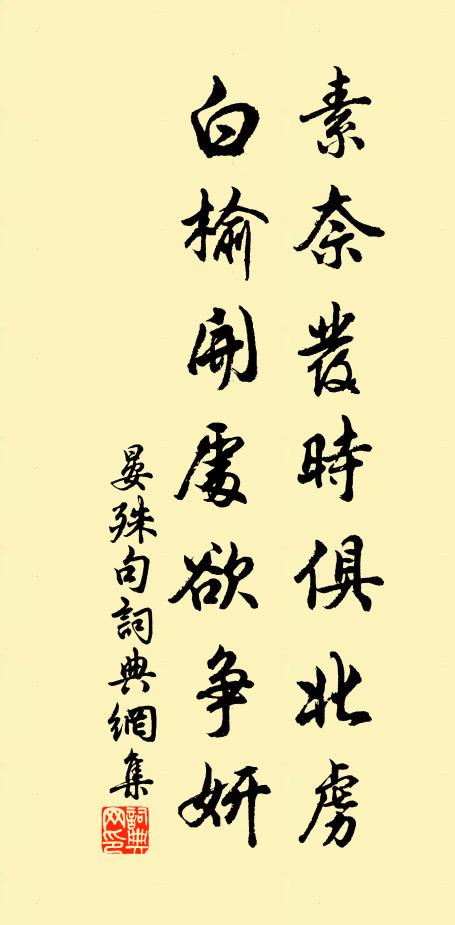 素柰發時俱北虜
白榆開處欲争妍
晏殊句詞典網集
詞典网印